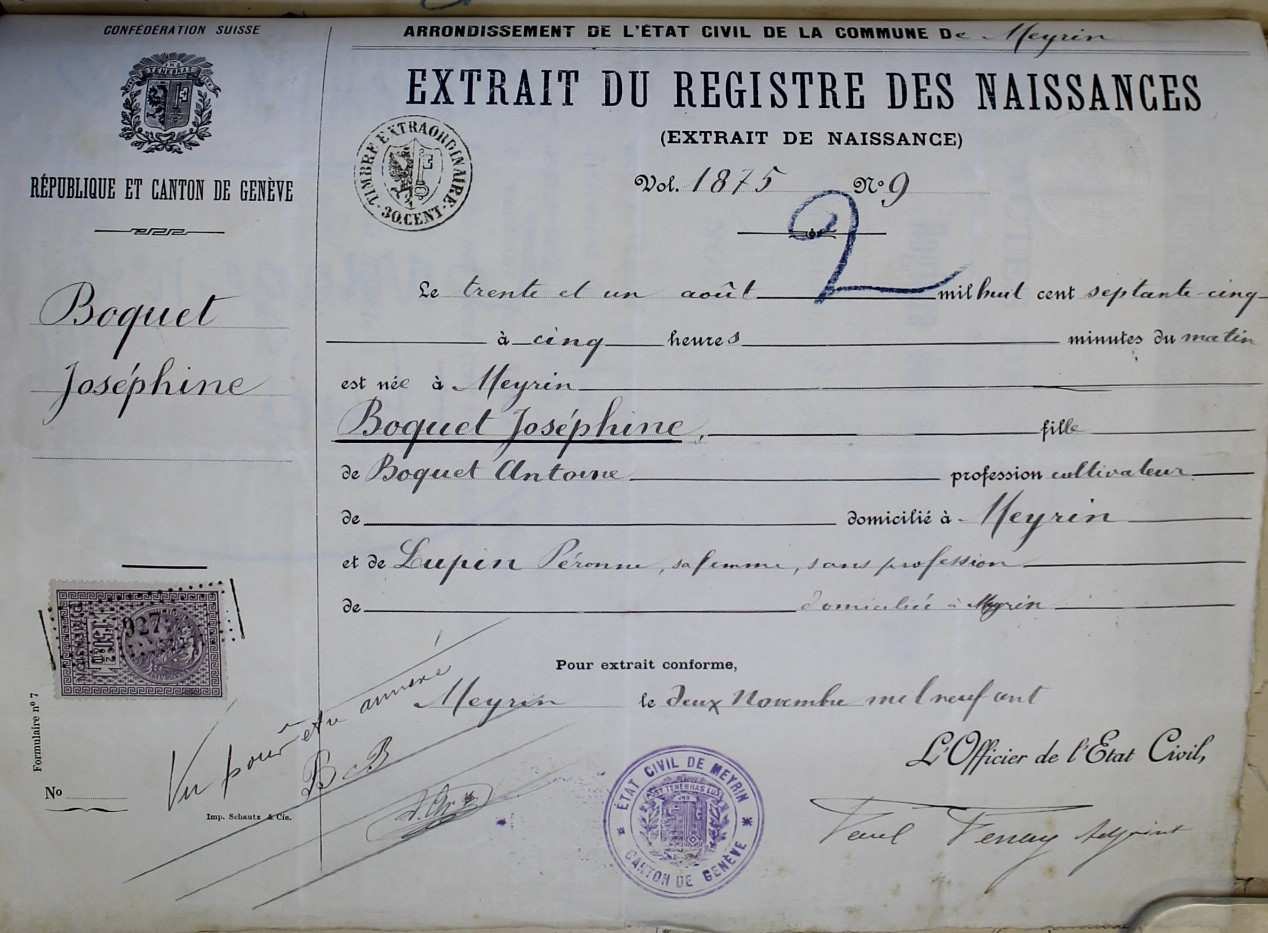 CONFÉDÉRATION SUISSE
POST TENEBRAS LUX
RÉPUBLIQUE ET CANTON DE GENÈVE
Boquet
Joséphine
927
Formulaire nº 7
No
Imp. Schautz & Cie.
ARRONDISSEMENT DE L'ÉTAT CIVIL DE LA COMMUNE De Meyrin
EXTRAIT DU REGISTRE DES NAISSANCES
(EXTRAIT DE NAISSANCE)
TIMBRE EXTRAORDINAIRE
30.CENT
Vol. 1875 Nº 9
2
Le trente et un août mil huit cent septante-cinq
à cinq heures minutes du matin
est née à Meyrin
Boquet Joséphine, fille
de Boquet Antoine profession cultivateur
de domicilié à Meyrin
et de Lupin Péronne, sa femme, sans profession
de domiciliée à Meyrin
Pour extrait conforme,
Meyrin le deux Novembre mil neuf cent
L'Officier de l'Etat Civil,
Vu pour être annexé
B B
ÉTAT CIVIL DE MEYRIN
POST TENEBRAS LUX
CANTON DE GENÈVE
Adjoint